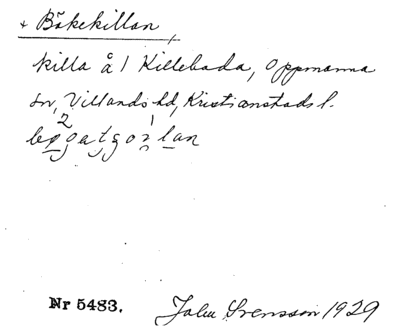 + Bökekillan
killa å 1 Killeboda, Oppmanna
sn, Villands hd, Kristianstads l.
Nr 5483. John Svensson 1929